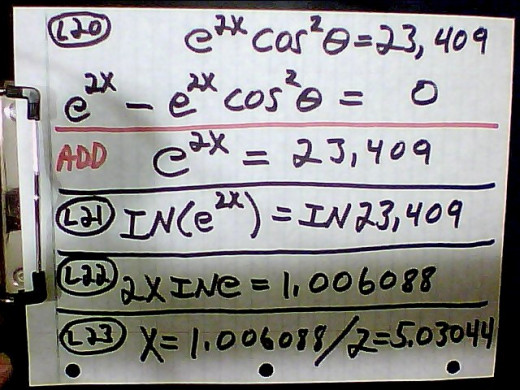 L20 e^2x cos^2θ = 23,409
e^2x - e^2x cos^2θ = 0
ADD e^2x = 23,409
L21 IN(e^2x) = IN23,409
L22 2X INe = 1.006088
L23 X = 1.006088/2 = 5.03044